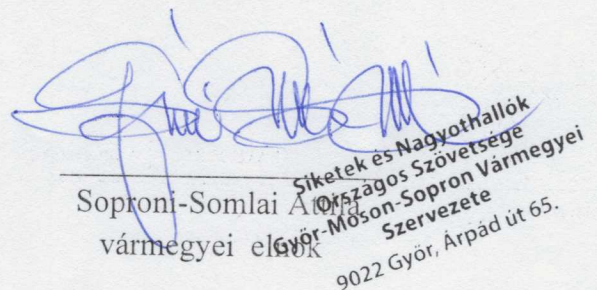 Soproni-Somlai Attila
vármegyei elnök
Siketek és Nagyothallók
Országos Szövetsége
Győr-Moson-Sopron Vármegyei
Szervezete
9022 Győr, Árpád út 65.